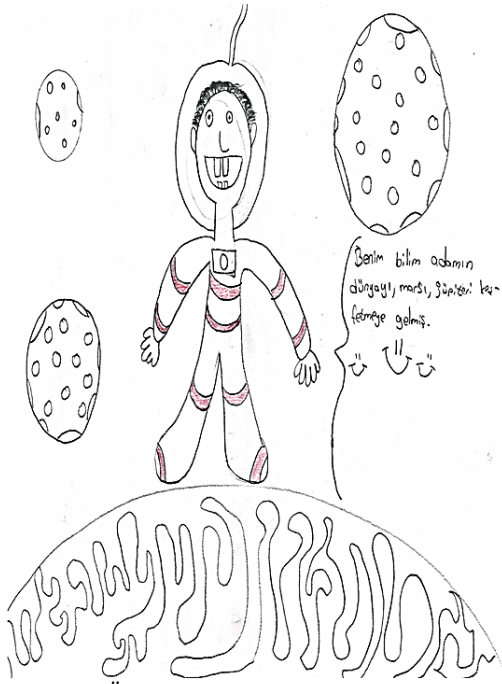 Benim bilim adamın
dünyayı, marsı, jüpiteri keş-
fetmeye gelmiş.